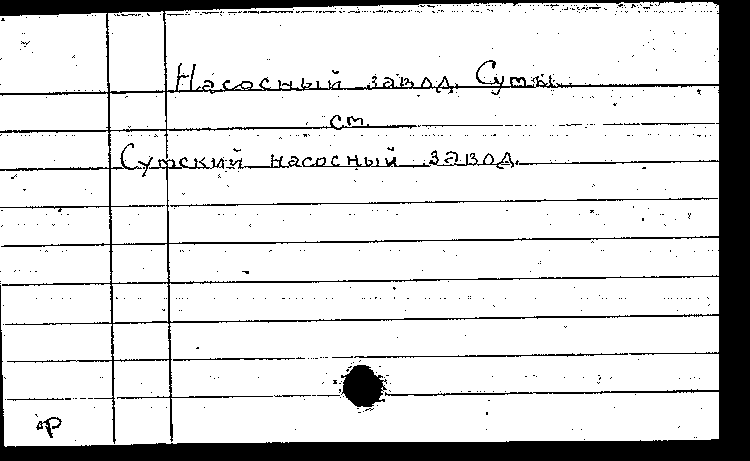 Насосный завод. Сумы.
см.
Сумский насосный завод.